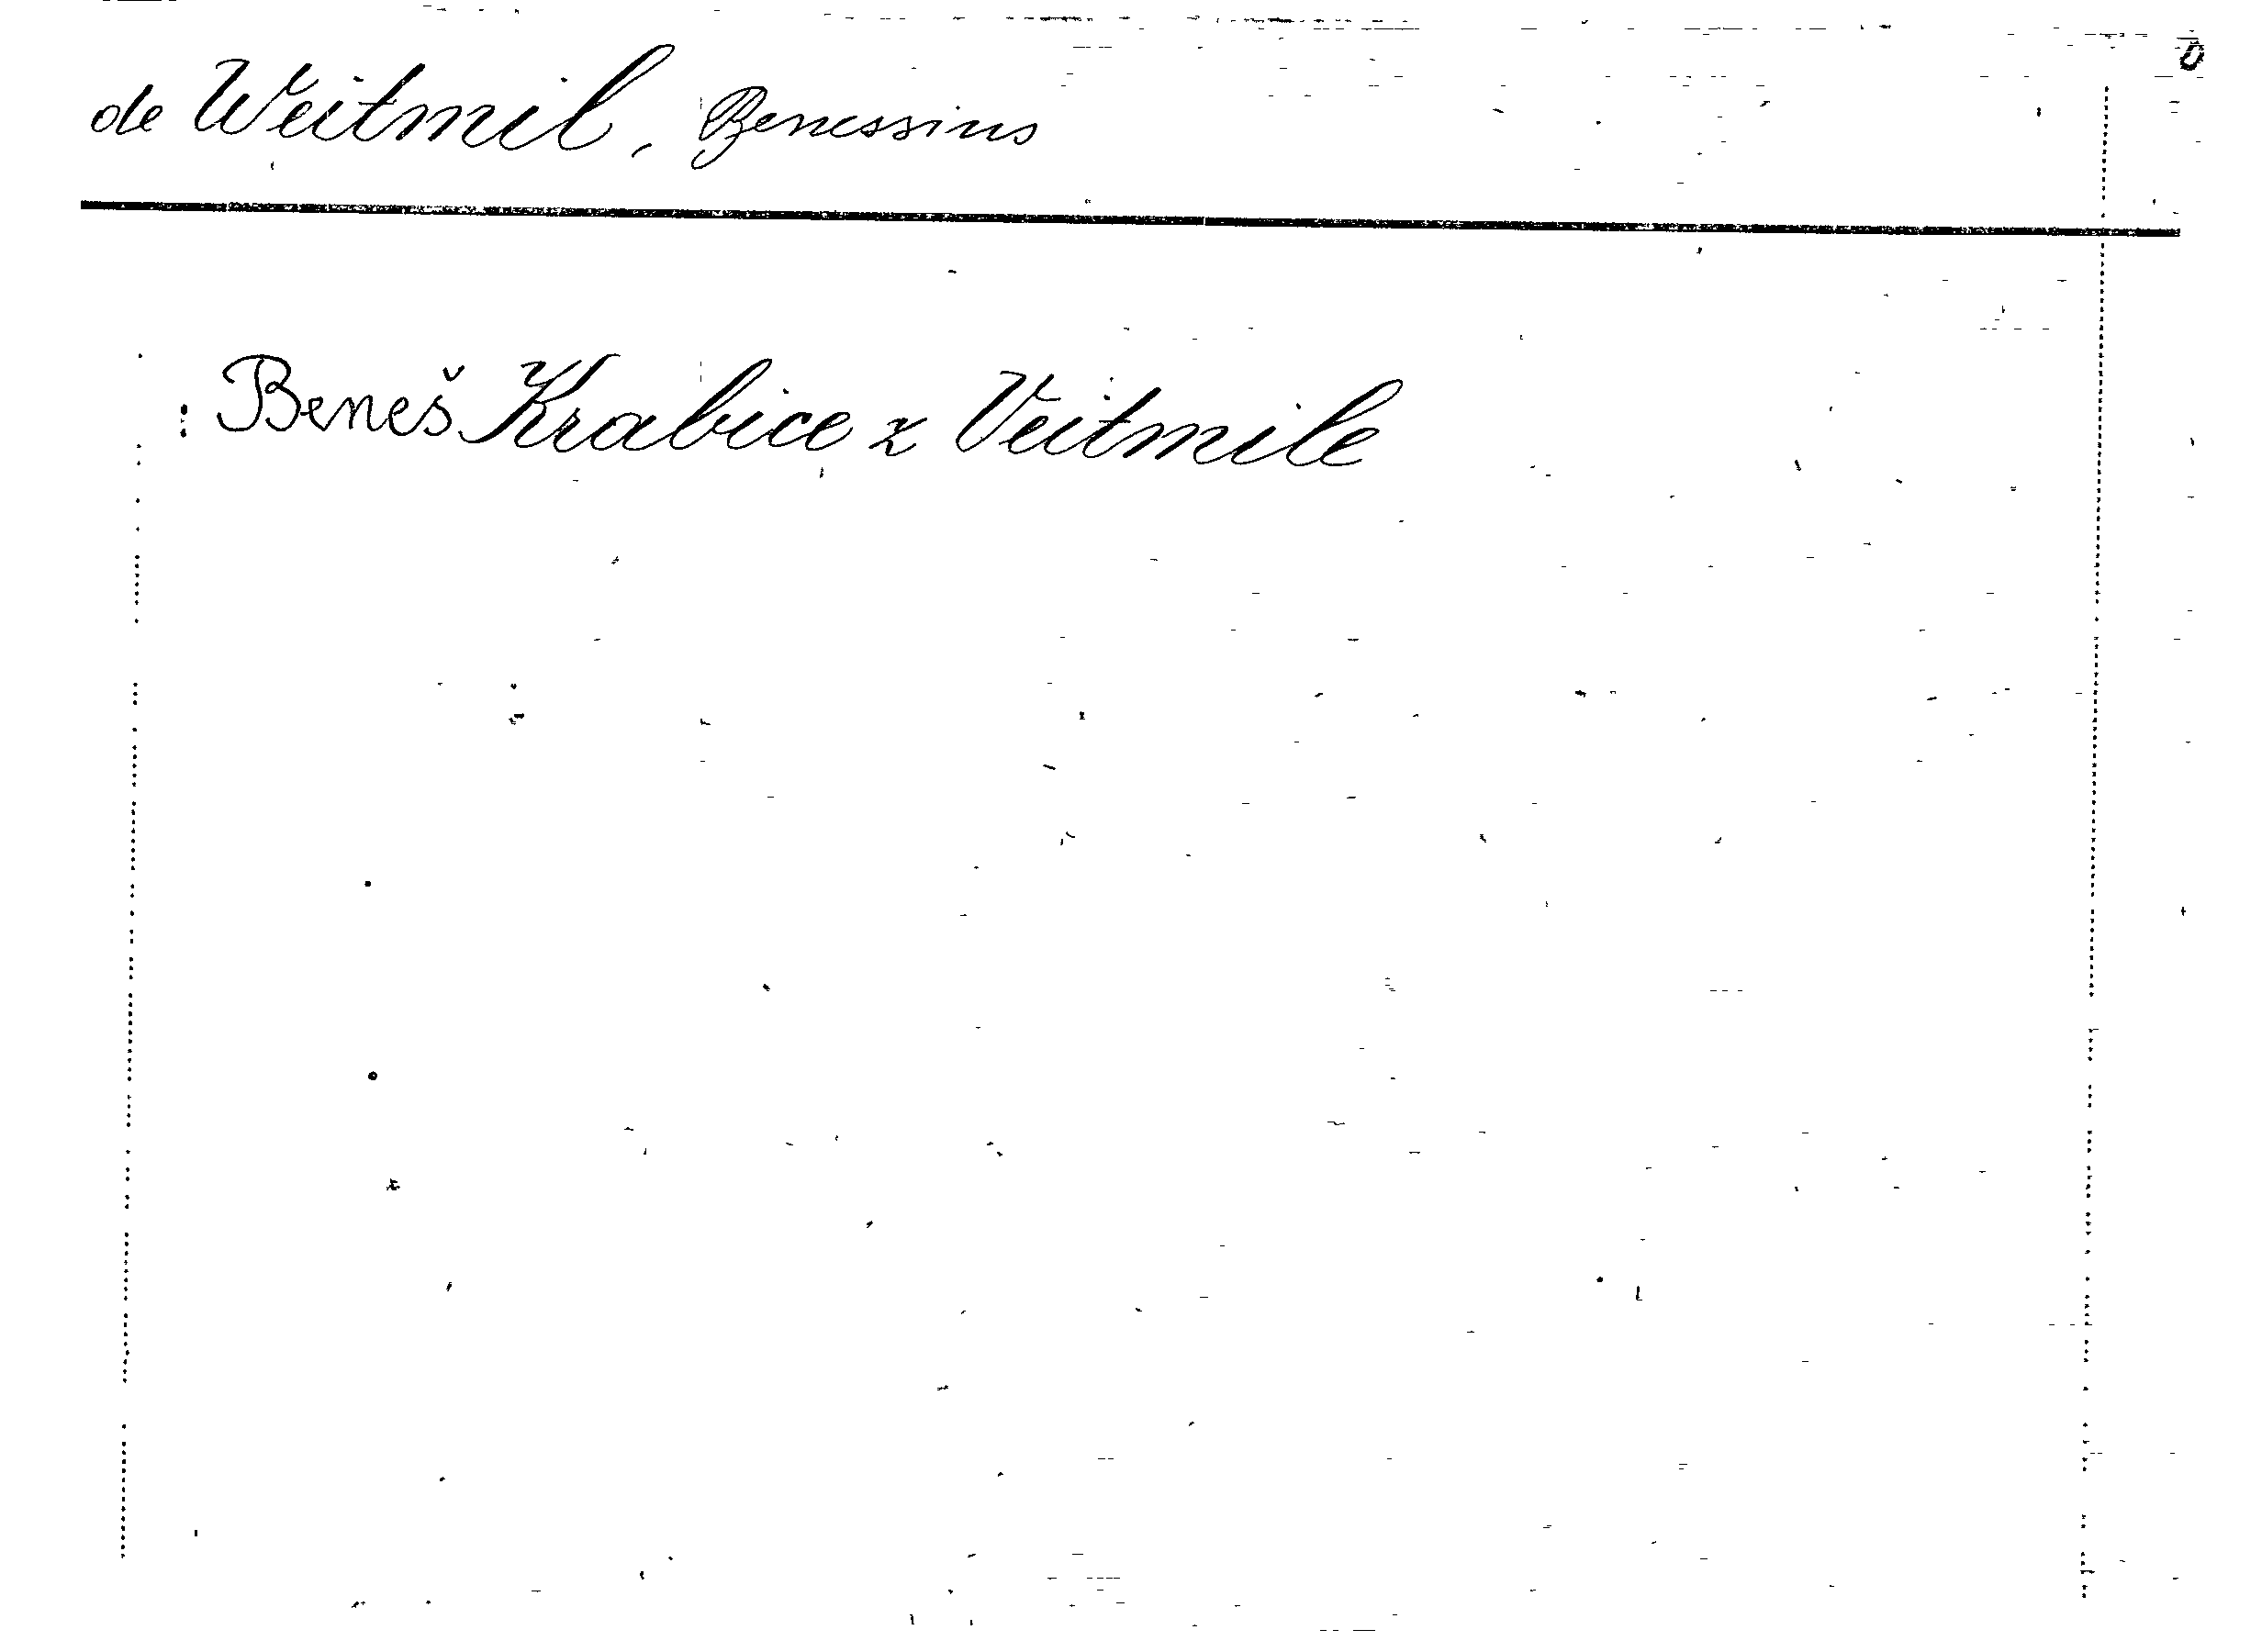 de Weitmil, Benessius
: Beneš Krabice z Veitmile